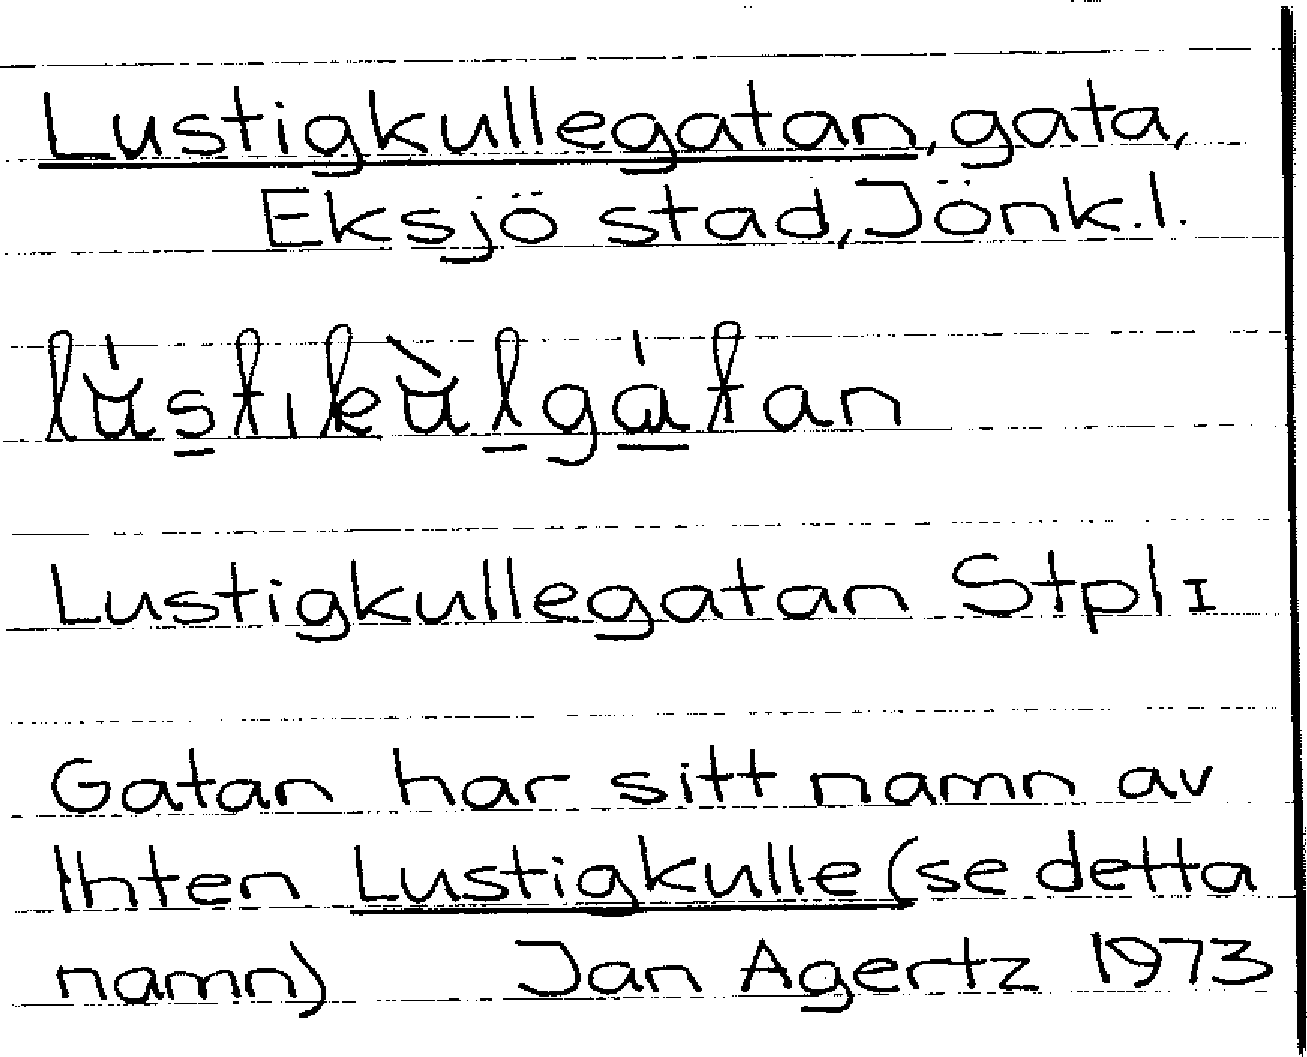 Lustigkullegatan, gata,
Eksjö stad, Jönk.l.
Lustigkullegatan Stpl I
Gatan har sitt namn av
lhten Lustigkulle (se detta
namn) Jan Agertz 1973